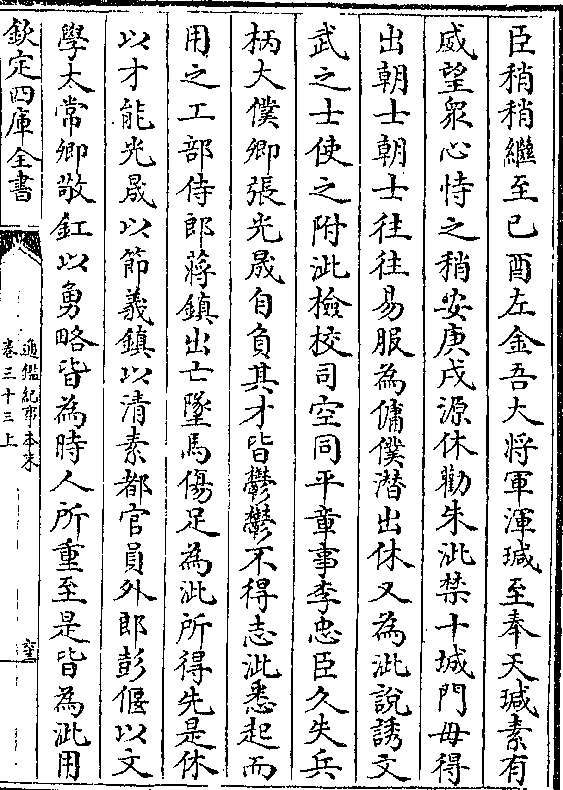 臣稍稍繼至已酉左金吾大將軍渾瑊至奉天瑊素有
威望衆心恃之稍安庚戌源休勸朱泚禁十城門毋得
出朝士朝士往往易服為傭僕潛出休又為泚說誘文
武之士使之附泚檢校司空同平章事李忠臣久失兵
柄太僕卿張光晟自負其才皆鬱鬱不得志泚悉起而
用之工部侍郎蔣鎮出亡墜馬傷足為泚所得先是休
以才能光晟以節義鎮以清素都官員外郎彭偃以文
學太常卿敬釭以勇略皆為時人所重至是皆為泚用
欽定四庫全書
通鑑紀事本末
卷三十三上